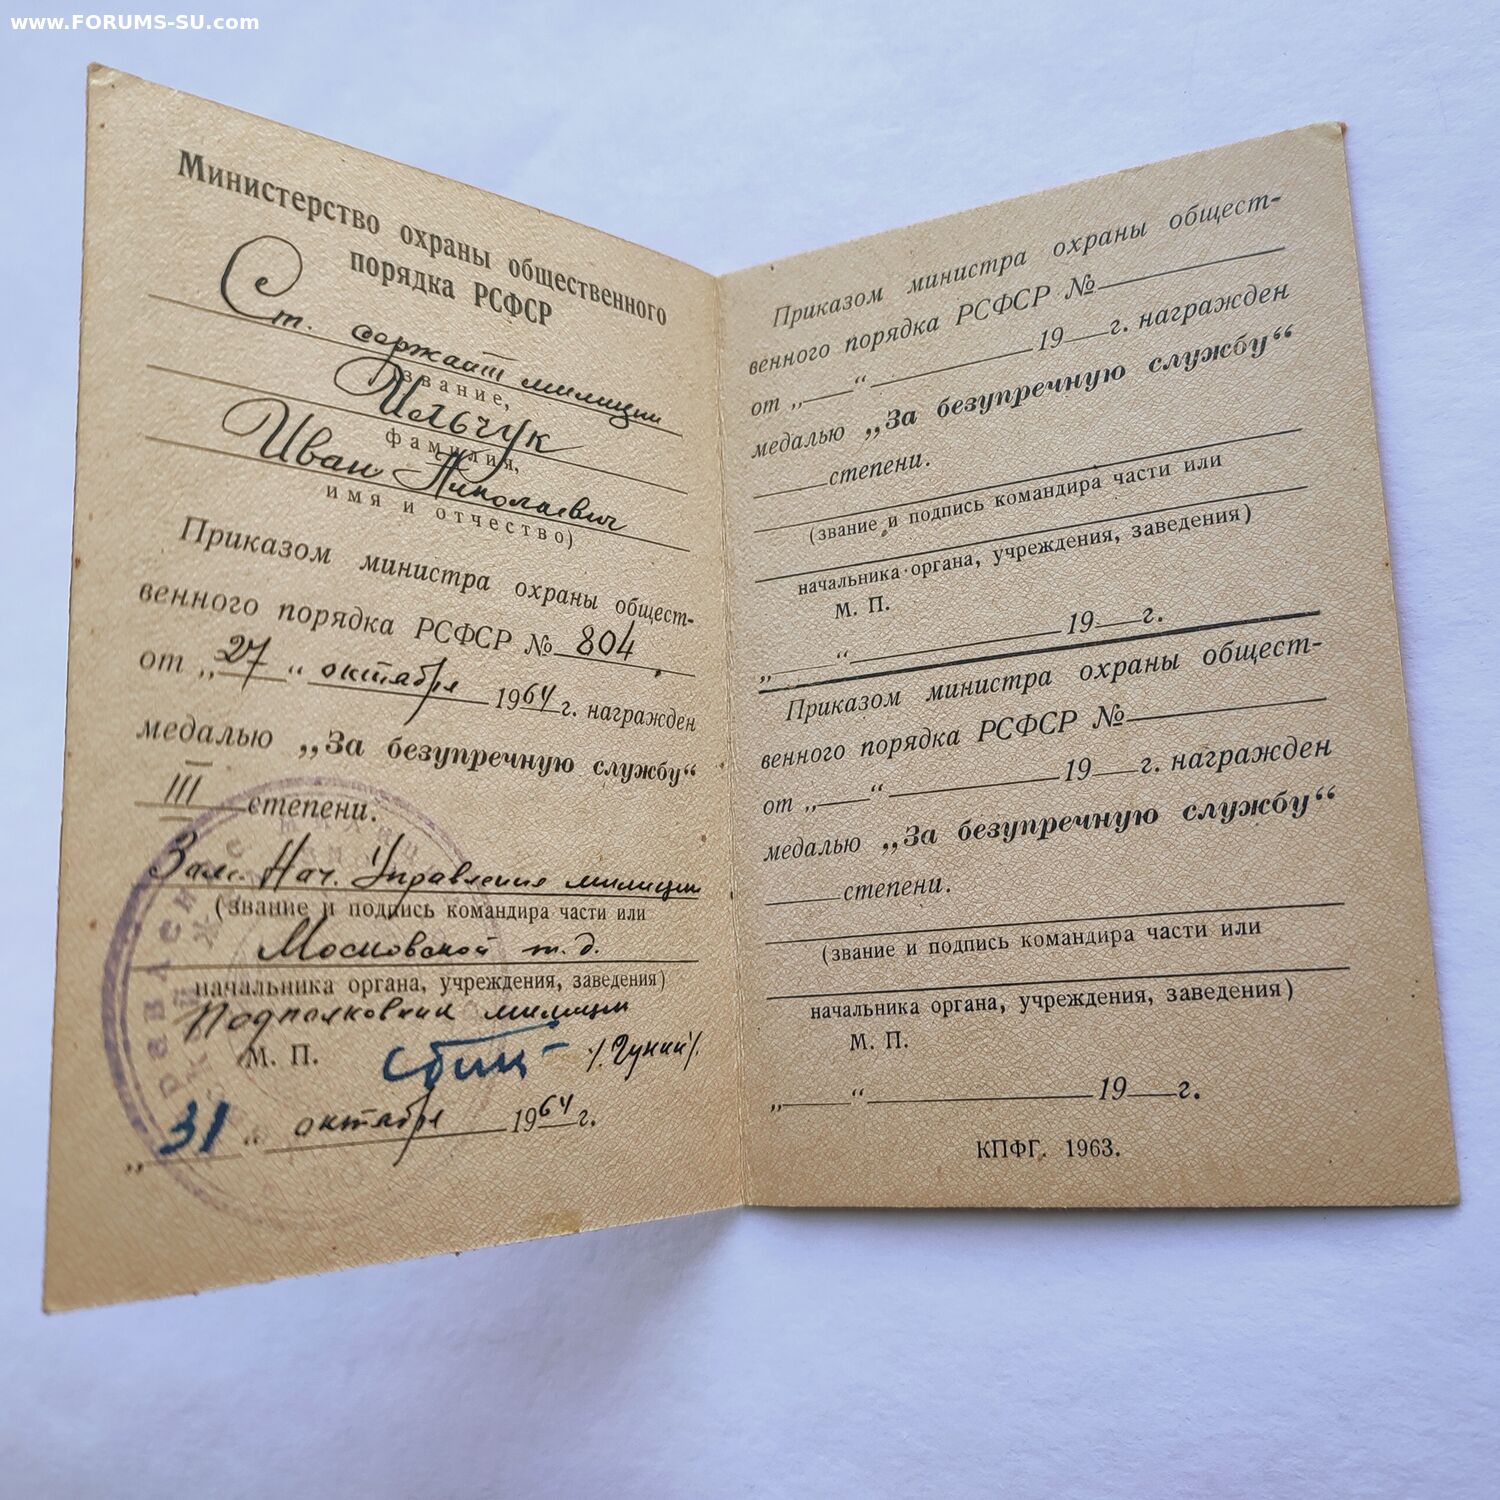 www.FORUMS-SU.com
Министерство охраны общественного
порядка РСФСР
Ст. сержант милиции
звание,
Ильчук
фамилия,
Иван Николаевич
имя и отчество)
Приказом министра охраны общест-
венного порядка РСФСР № 804
от „27“ октября 1964 г. награжден
медалью „За безупречную службу“
III степени.
Зам. Нач. Управления милиции
(звание и подпись командира части или
Московской ж. д.
начальника органа, учреждения, заведения)
Подполковник милиции
М. П.
„31“ октября 1964 г.
Приказом министра охраны общест-
венного порядка РСФСР №
от „ “ 19 г. награжден
медалью „За безупречную службу“
степени.
(звание и подпись командира части или
начальника органа, учреждения, заведения)
М. П.
„ “ 19 г.
Приказом министра охраны общест-
венного порядка РСФСР №
от „ “ 19 г. награжден
медалью „За безупречную службу“
степени.
(звание и подпись командира части или
начальника органа, учреждения, заведения)
М. П.
„ “ 19 г.
КПФГ. 1963.